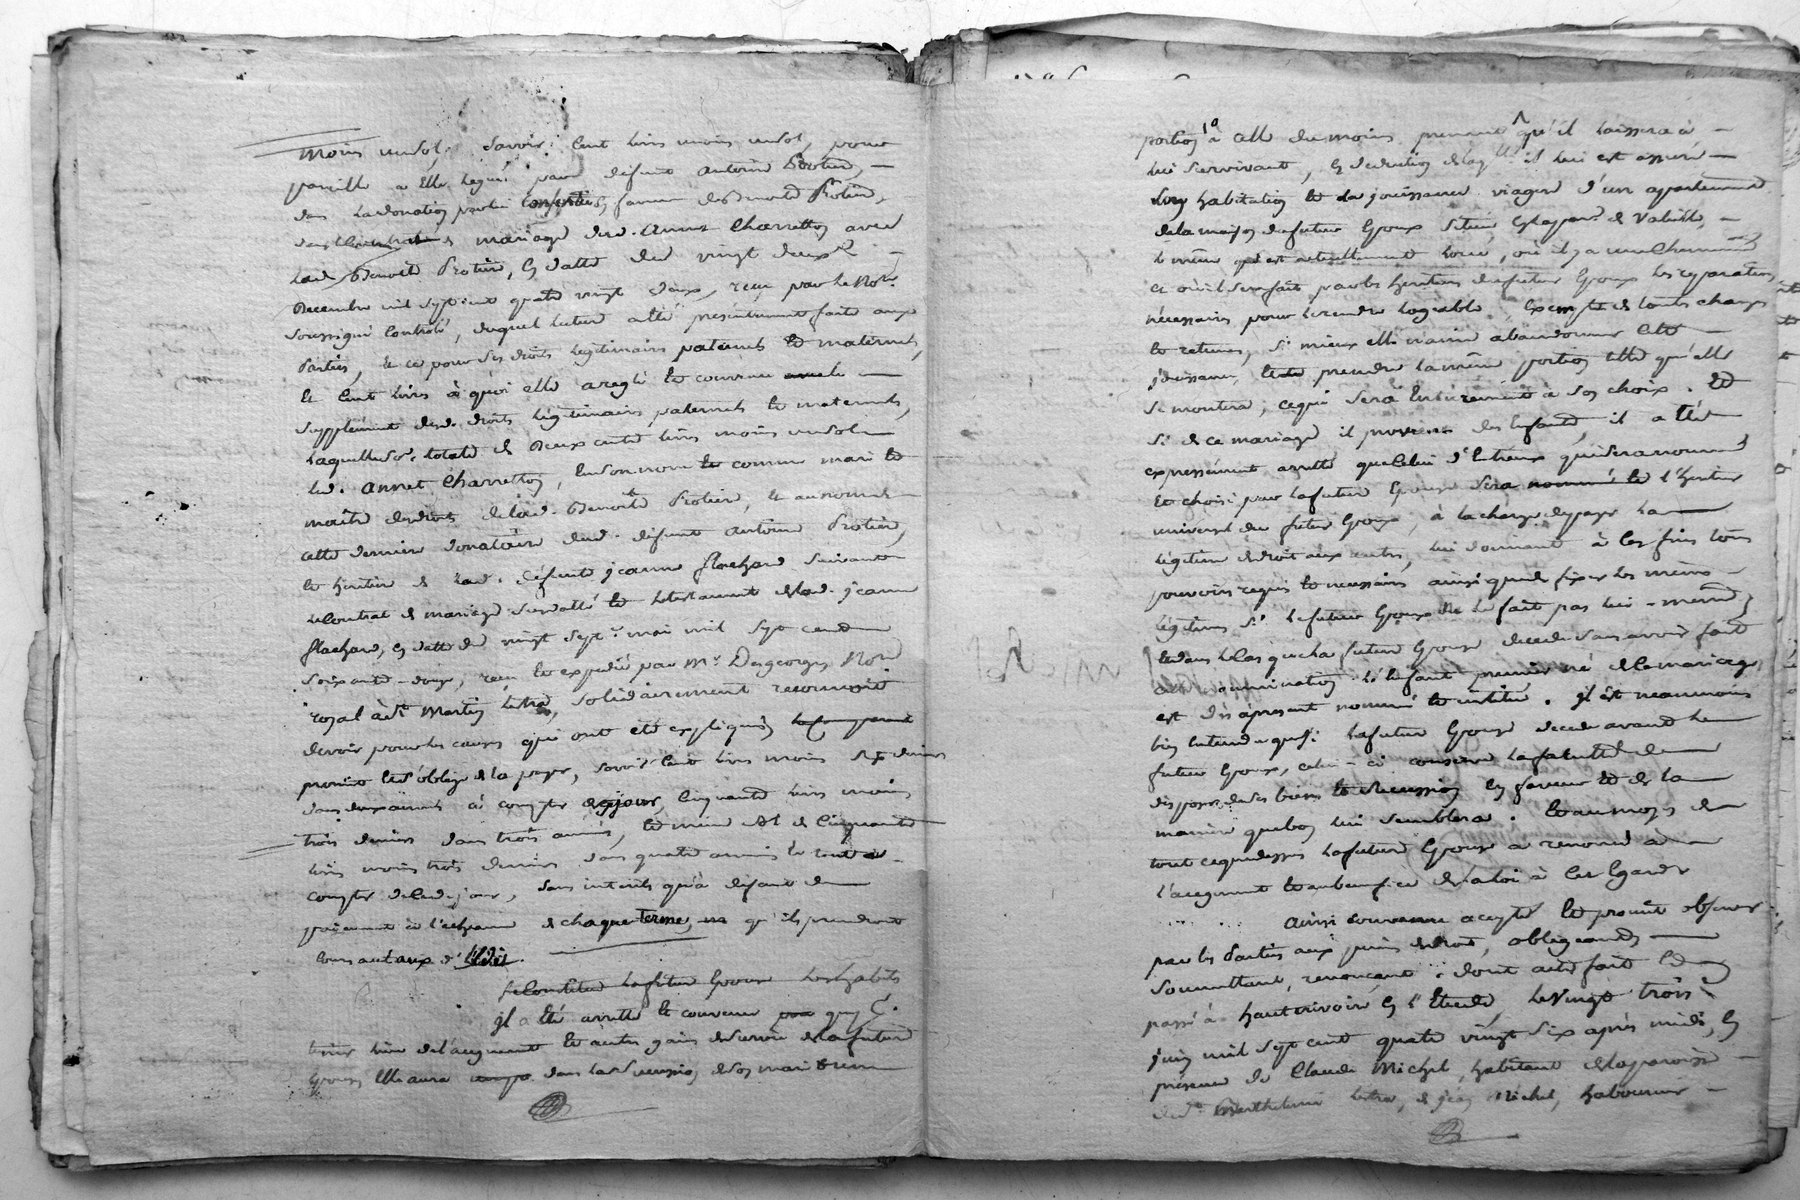 moins un sol, savoir : Cent livres moins un sol, pour
pareille a elle leguée par défunt antoine Protière,
dans la donation par lui en faveur de Benoite Protière,
dans le Contrat de mariage dud. annet Charretton avec
lad. Benoite Protière, en datte du vingt deux
Decembre mil sept cent quatre vingt deux, reçu par le Notr.
soussigné Controlé, duquel lecture a été présentement faite aux
Parties, et ce pour ses droits légitimaires paternels et maternels,
et Cent livres à quoi elle a reglé et convenu
supplément desd. droits légitimaires, paternels et maternels,
laquelle so. totale de Deux cents livres moins un sol
led. annet Charretton, en son nom et comme mari et
maître des droits de lad. Benoite Protière, et au nom de
cette dernière donataire dud. défunt antoine Protière,
et héritier de lad. défunte jeanne flachard suivant
le Contrat de mariage susdatté et le testament de lad. jeanne
flachard, en datte du vingt sept mai mil sept cent
soixante-douze, reçu et expédié par Mr. Desgeorges Notre
royal à St Martin lestra, solidairement reconnoit
devoir pour les causes qui ont été expliquées
promis et s'oblige de la payer, savoir Cent livres moins six deniers
dans deux années à compter de ce jour, Cinquante livres moins
trois deniers dans trois années, et même de Cinquante
livres moins trois deniers dans quatre années le tout à
compter de cedit jour, sans intérêts qu'à défaut de
payement à l'echeance de chaque terme, qu'ils prendront
cours au taux de l'Edit.
se Constitue la future Epouse les habits
Il a été arretté et convenu
lieu de l'augment et autres gains de survie de la future
Epouse elle aura dans la succession de son mari une
portion à celle du moins prenant qu'il laissera à
lui survivant, en deduction de laqlle il lui est assuré
habitation et la jouissance viagère d'un appartement
de la maison du futur Epoux située en la par. de Valeille,
le même qui est actuellement loué, où il y a une Cheminée
et où il sera fait par les héritiers du futur Epoux les réparations
nécessaires pour le rendre logeable, Exempte de toutes charges
et retenues, si mieux elle n'aime abandonner cette
jouissance, et prendre la même portion telle qu'elle
se montera, ce qui sera entièrement à son choix. Et
si de ce mariage il provient des Enfants, il a été
expressément arretté que celui d'Entreux qui sera nommé
et choisi par la future Epouse sera nommé et l'héritier
universel du futur Epoux, à la charge de payer la
légitime de droit aux autres, lui donnant à ces fins tous
pouvoirs requis et nécessaires ainsi que de fixer les mêmes
légitimes si le futur Epoux ne le fait pas lui-même,
et dans le Cas que la future Epouse decede sans avoir fait
nomination l'Enfant premier né de ce mariage,
est dès àprésent nommé et institué. Il est neanmoins
bien entendu que si la future Epouse decede avant le
futur Epoux, celui-ci conserve la faculté de
disposer de ses biens et succession en faveur et de la
manière que bon lui semblera. et au moyen de
tout ce que dessus la future Epouse a renoncé à
l'augment et au bénéfice de la loi à cet Egard.
Ainsi convenu accepté et promit observer
par les Parties aux peines de droit, obligeants
soumettant, renonçant : dont acte fait et
passé à haute rivoire en l'Etude, le vingt trois
juin mil sept cent quatre vingt six après midi, en
présence de Claude Michel, habitant de la paroisse
de St Barthelemi lestra, et jean Michel, laboureur